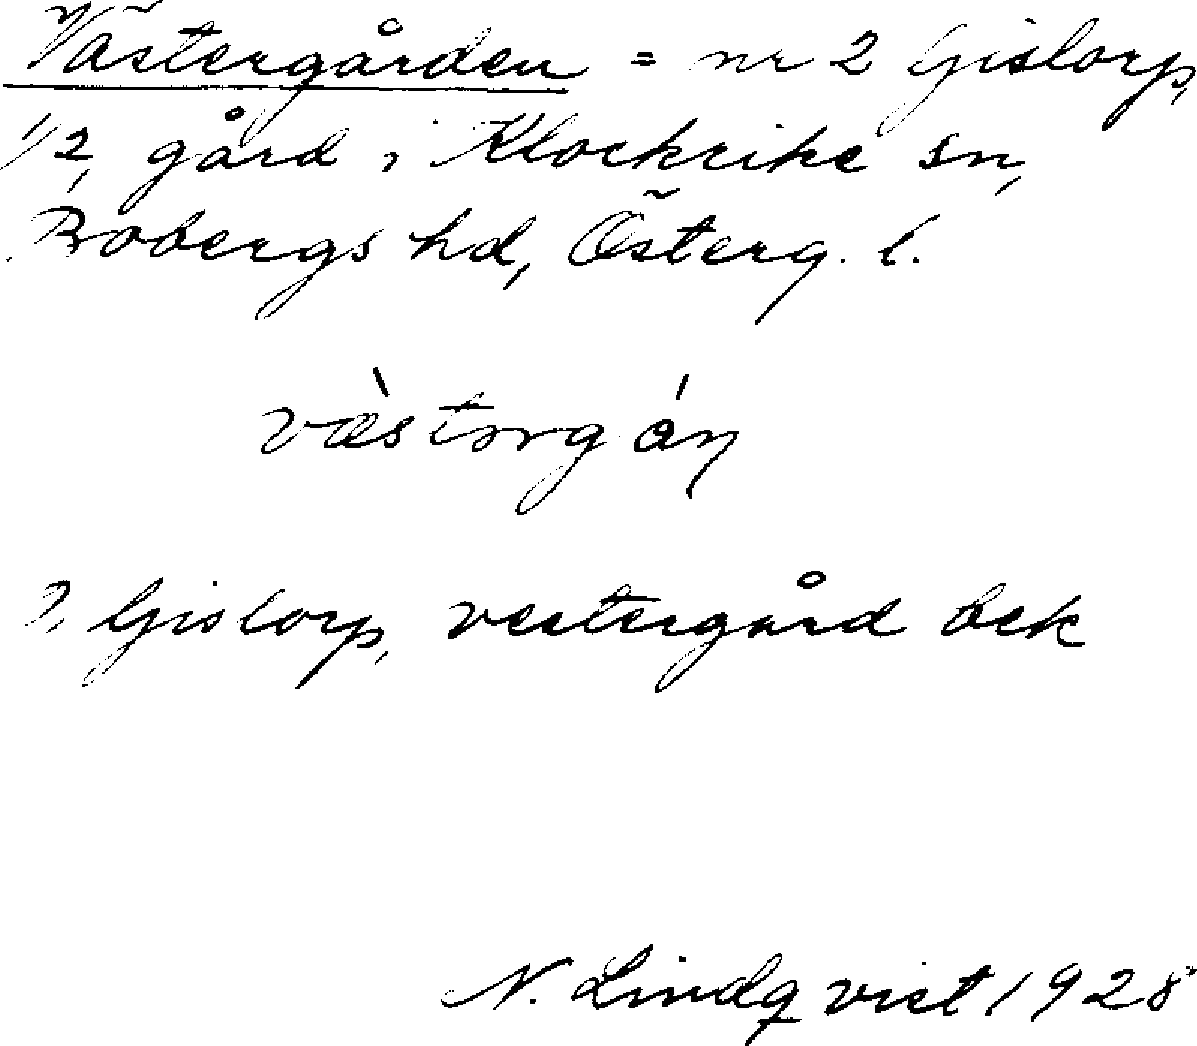 Västergården = nr 2 Gislorp,
1/2 gård i Klockrike sn,
Bobergs hd, Österg. l.
væ̀storgán
?, Gislorp, vestergård bek
N. Lindqvist 1928